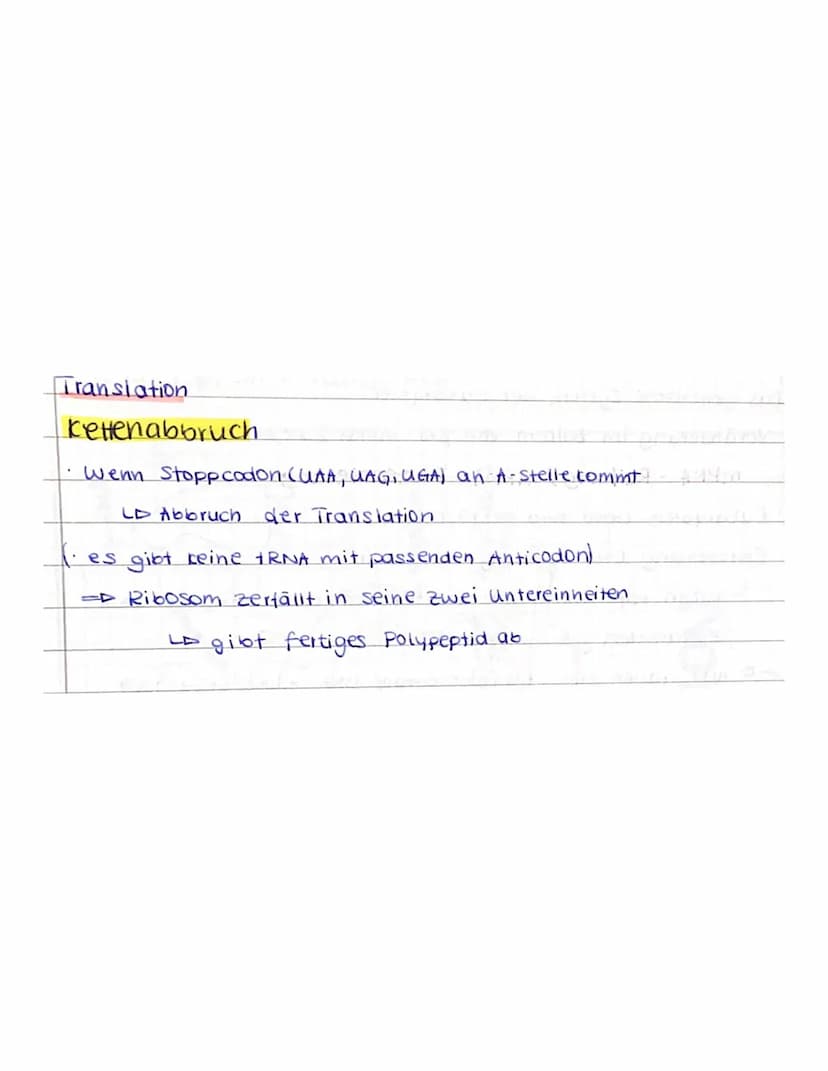 Translation
Kettenabbruch
· Wenn Stoppcodon (UAA, UAG, UGA) an A-Stelle kommt
↳ Abbruch der Translation
(· es gibt keine tRNA mit passenden Anticodon)
⇒ Ribosom zerfällt in seine zwei Untereinheiten
↳ gibt fertiges Polypeptid ab